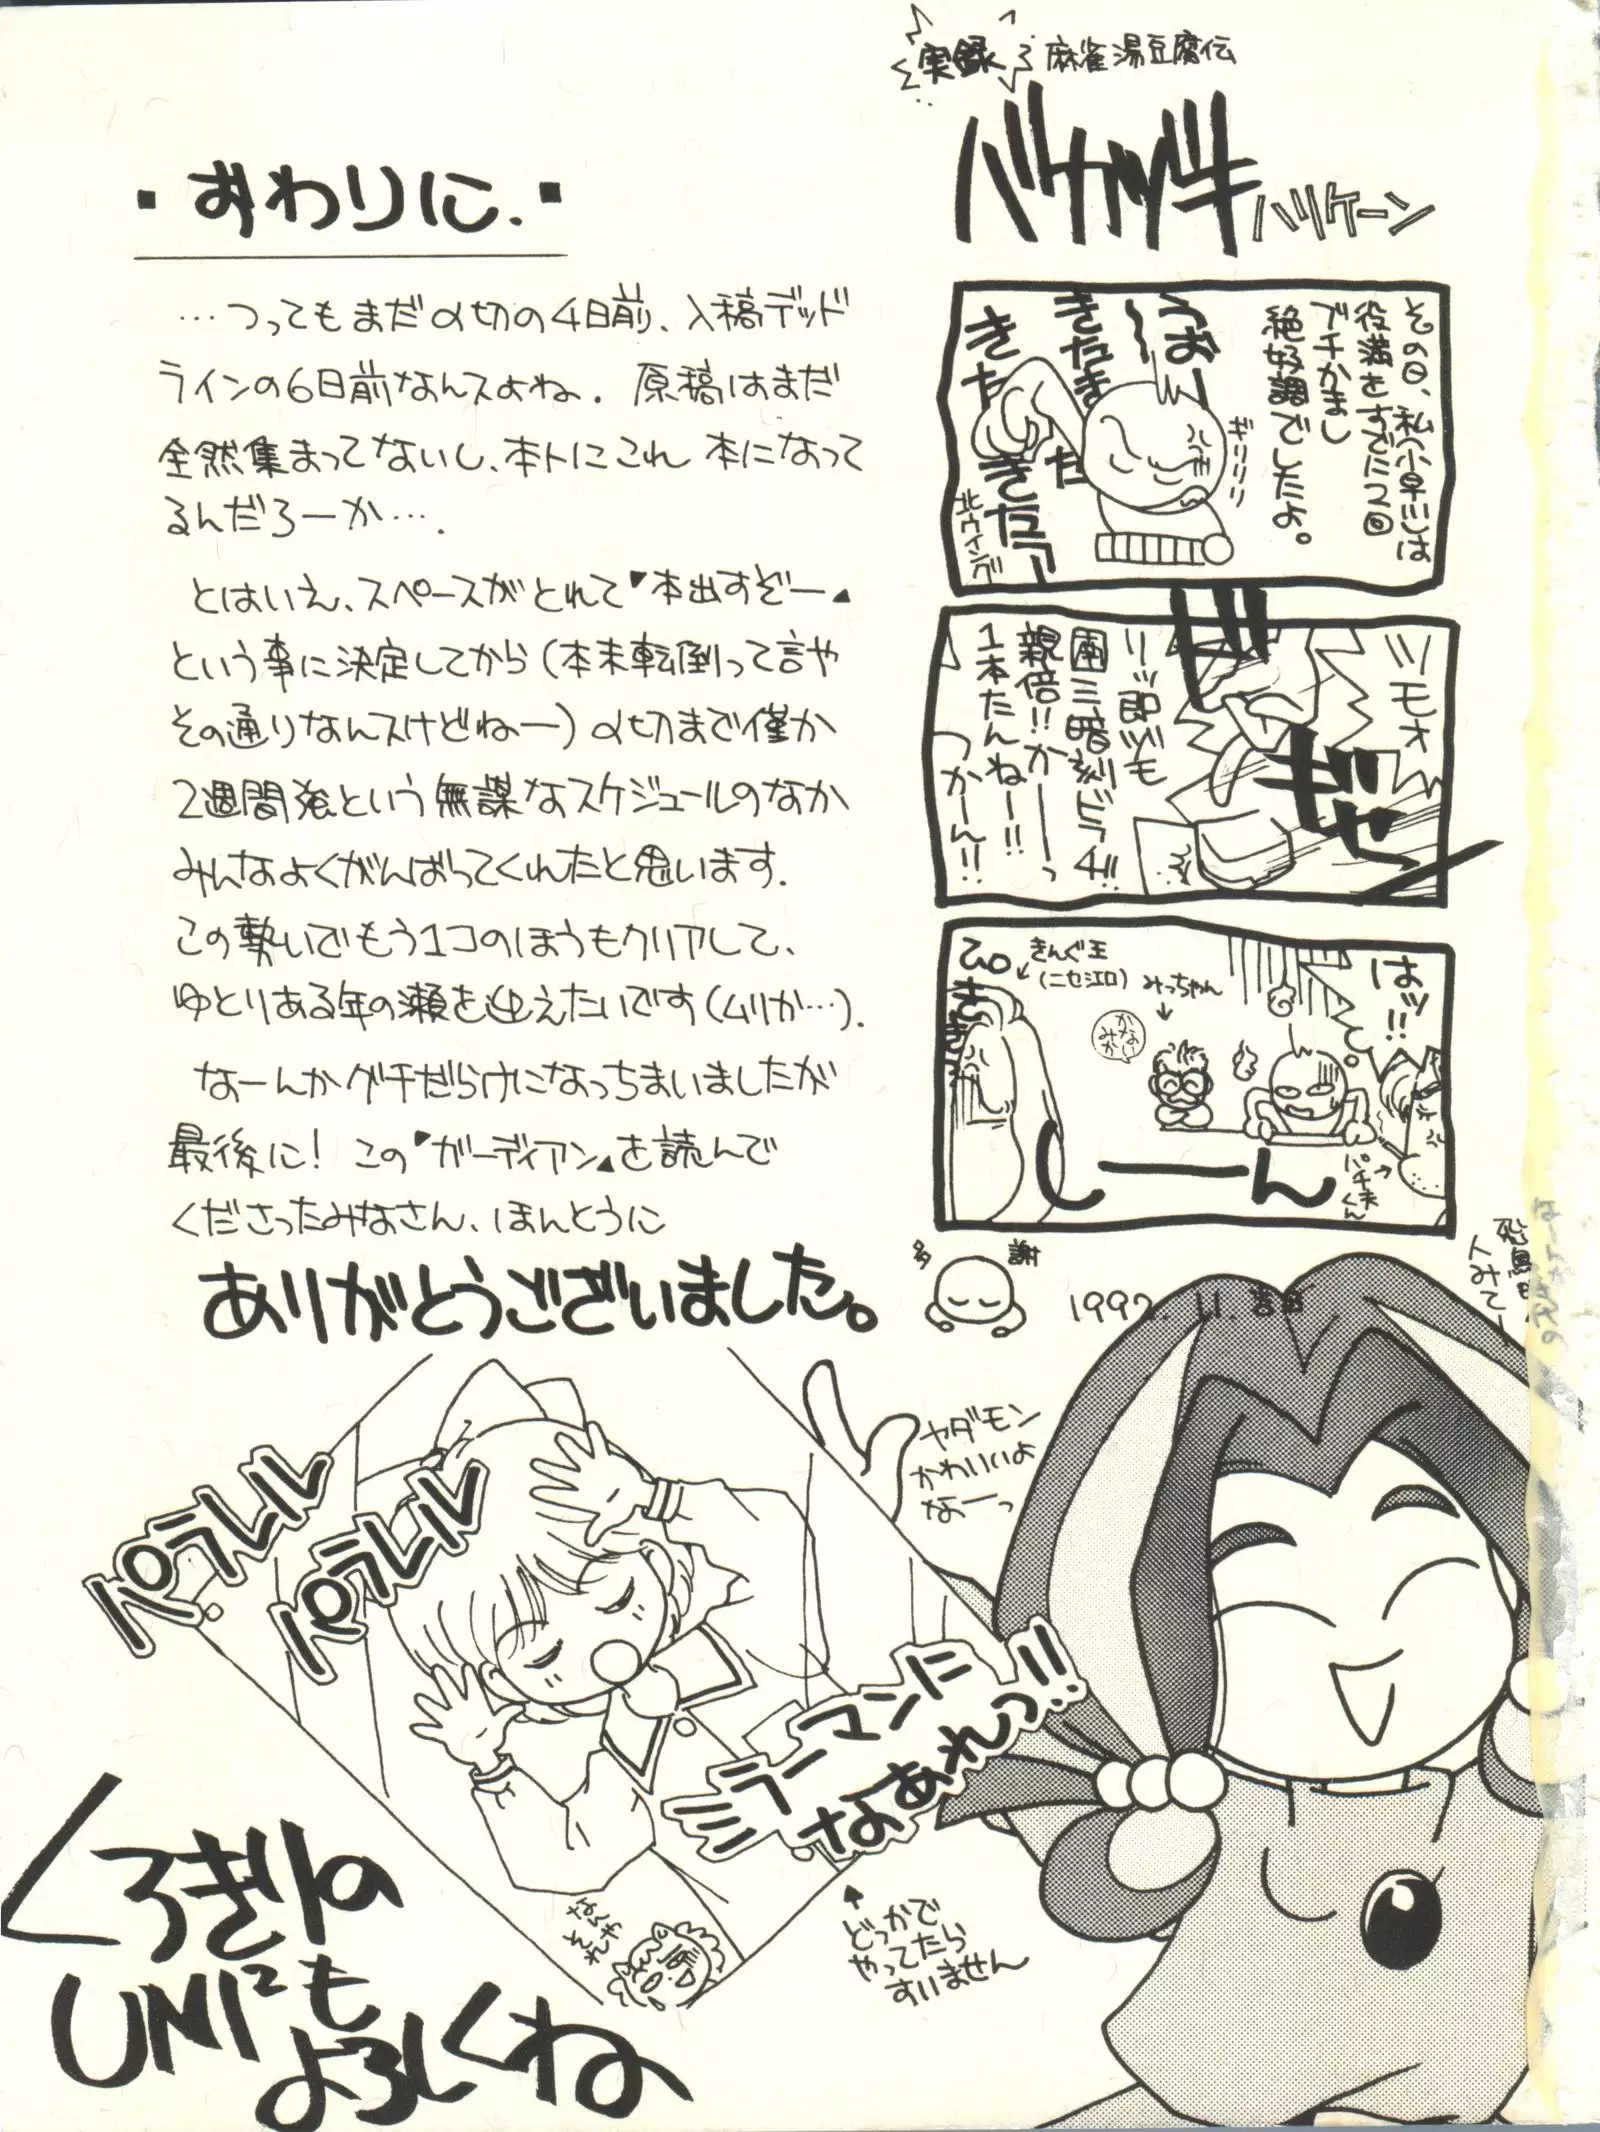 ・おわりに.・
…つってもまだ〆切の4日前、入稿デッド
ラインの6日前なんスよね. 原稿はまだ
全然集まってないし、本トにこれ 本になって
るんだろーか….
とはいえ、スペースがとれて「本出すぞー」
という事に決定してから(本末転倒って言や
その通りなんスけどねー)〆切まで僅か
2週間強という無謀なスケジュールのなか
みんなよくがんばってくれたと思います.
この勢いでもう1コのほうもクリアして、
ゆとりある年の瀬を迎えたいです(ムリか…).
なーんかグチだらけになっちまいましたが
最後に! この「ガーディアン」を読んで
くださったみなさん、ほんとうに
ありがとうございました。
多謝
1992. 11. 吉日
実録 麻雀湯豆腐伝
バカヅキ ハリケーン
その日、私(小早川)は
役満をすでに2回
ブチかまし
絶好調でしたよ。
うお〜
きたきた
きた
きたっ
ギリリリリ
北ウイング
ツモォ
リーッ即ヅモ
南三暗刻ドラ
親倍!!かーーっ
1本たんねー!!
つかーん!!
ギャ
はッ!!
きんぐ王
(ニセ江口)
みっちゃん
かない
みか
パチ夫くん
ぴきき
しーーん
ヤダモン
かわいいよ
なーっ
パラレル
パラレル
ラーマンに
なあれっ!!
どっかで
やってたら
すいません
くろきりの
UNI²も
よろしくね